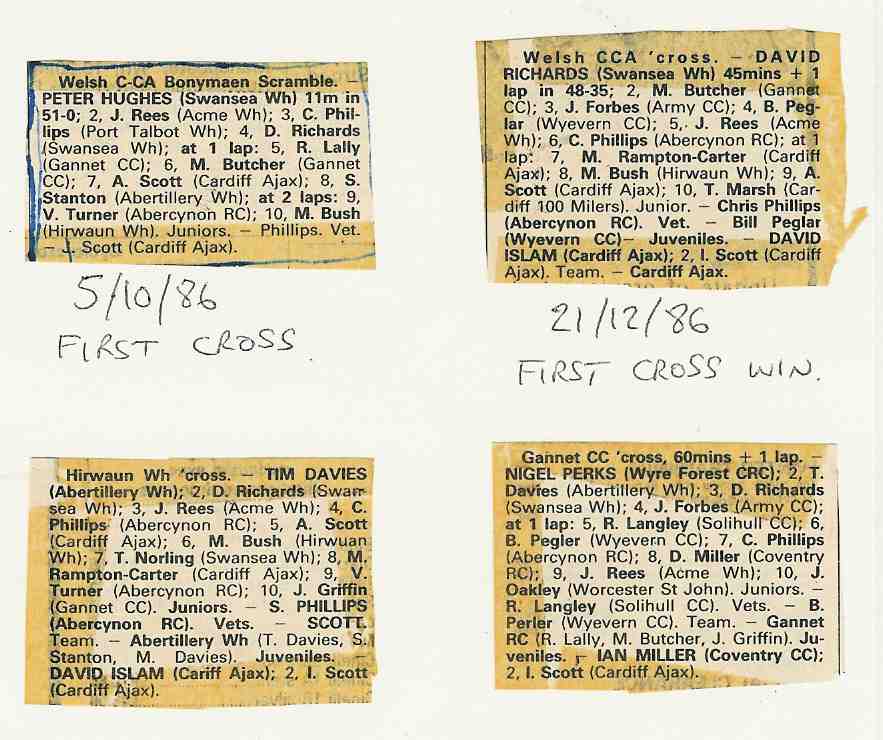 Welsh C-CA Bonymaen Scramble. —
PETER HUGHES (Swansea Wh) 11m in
51-0; 2, J. Rees (Acme Wh); 3, C. Phil-
lips (Port Talbot Wh); 4, D. Richards
(Swansea Wh); at 1 lap: 5, R. Lally
(Gannet CC); 6, M. Butcher (Gannet
CC); 7, A. Scott (Cardiff Ajax); 8, S.
Stanton (Abertillery Wh); at 2 laps: 9,
V. Turner (Abercynon RC); 10, M. Bush
(Hirwaun Wh). Juniors. — Phillips. Vet.
— J. Scott (Cardiff Ajax).
5/10/86
FIRST CROSS.
Welsh CCA 'cross. — DAVID
RICHARDS (Swansea Wh) 45mins + 1
lap in 48-35; 2, M. Butcher (Gannet
CC); 3, J. Forbes (Army CC); 4, B. Peg-
lar (Wyevern CC); 5, J. Rees (Acme
Wh); 6, C. Phillips (Abercynon RC); at 1
lap: 7, M. Rampton-Carter (Cardiff
Ajax); 8, M. Bush (Hirwaun Wh); 9, A.
Scott (Cardiff Ajax); 10, T. Marsh (Car-
diff 100 Milers). Junior. — Chris Phillips
(Abercynon RC). Vet. — Bill Peglar
(Wyevern CC)— Juveniles. — DAVID
ISLAM (Cardiff Ajax); 2, I. Scott (Cardiff
Ajax). Team. — Cardiff Ajax.
21/12/86
FIRST CROSS WIN.
Hirwaun Wh 'cross. — TIM DAVIES
(Abertillery Wh); 2, D. Richards (Swan-
sea Wh); 3, J. Rees (Acme Wh); 4, C.
Phillips (Abercynon RC); 5, A. Scott
(Cardiff Ajax); 6, M. Bush (Hirwuan
Wh); 7, T. Norling (Swansea Wh); 8, M.
Rampton-Carter (Cardiff Ajax); 9, V.
Turner (Abercynon RC); 10, J. Griffin
(Gannet CC). Juniors. — S. PHILLIPS
(Abercynon RC). Vets. — SCOTT.
Team. — Abertillery Wh (T. Davies, S.
Stanton, M. Davies). Juveniles. —
DAVID ISLAM (Cariff Ajax); 2, I. Scott
(Cardiff Ajax).
Gannet CC 'cross, 60mins + 1 lap. —
NIGEL PERKS (Wyre Forest CRC); 2, T.
Davies (Abertillery Wh); 3, D. Richards
(Swansea Wh); 4, J. Forbes (Army CC);
at 1 lap: 5, R. Langley (Solihull CC); 6,
B. Pegler (Wyevern CC); 7, C. Phillips
(Abercynon RC); 8, D. Miller (Coventry
RC); 9, J. Rees (Acme Wh); 10, J.
Oakley (Worcester St John). Juniors. —
R. Langley (Solihull CC). Vets. — B.
Perler (Wyevern CC). Team. — Gannet
RC (R. Lally, M. Butcher, J. Griffin). Ju-
veniles. — IAN MILLER (Coventry CC);
2, I. Scott (Cardiff Ajax).